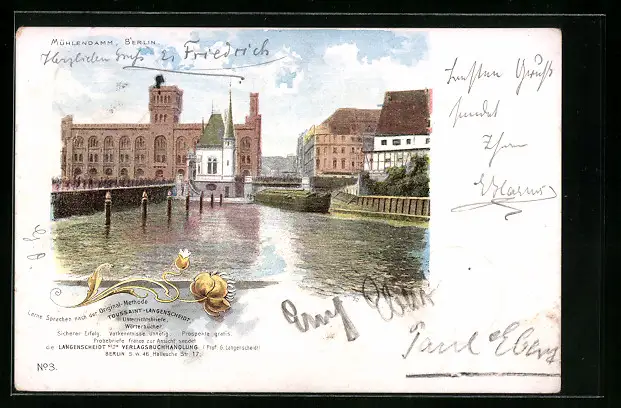 MÜHLENDAMM, BERLIN.
Herzlichen Gruss v. Friedrich
Gruß
sendet
Ihnen
Lerne Sprachen nach der Original-Methode
TOUSSAINT-LANGENSCHEIDT.
Unterrichtsbriefe.
Wörterbücher.
Sicherer Erfolg. Vorkenntnisse unnötig. Prospekte gratis.
Probebriefe franco zur Ansicht sendet
die LANGENSCHEIDTsche VERLAGSBUCHHANDLUNG. (Prof. G. Langenscheidt)
BERLIN S.W. 46, Hallesche Str. 17.
Paul Ebers
No3.